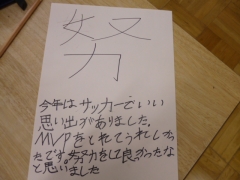 努
今年はサッカーでいい
思い出がありました。
MVPをとれてうれしかっ
たです。努力をして良かったな
と思いました